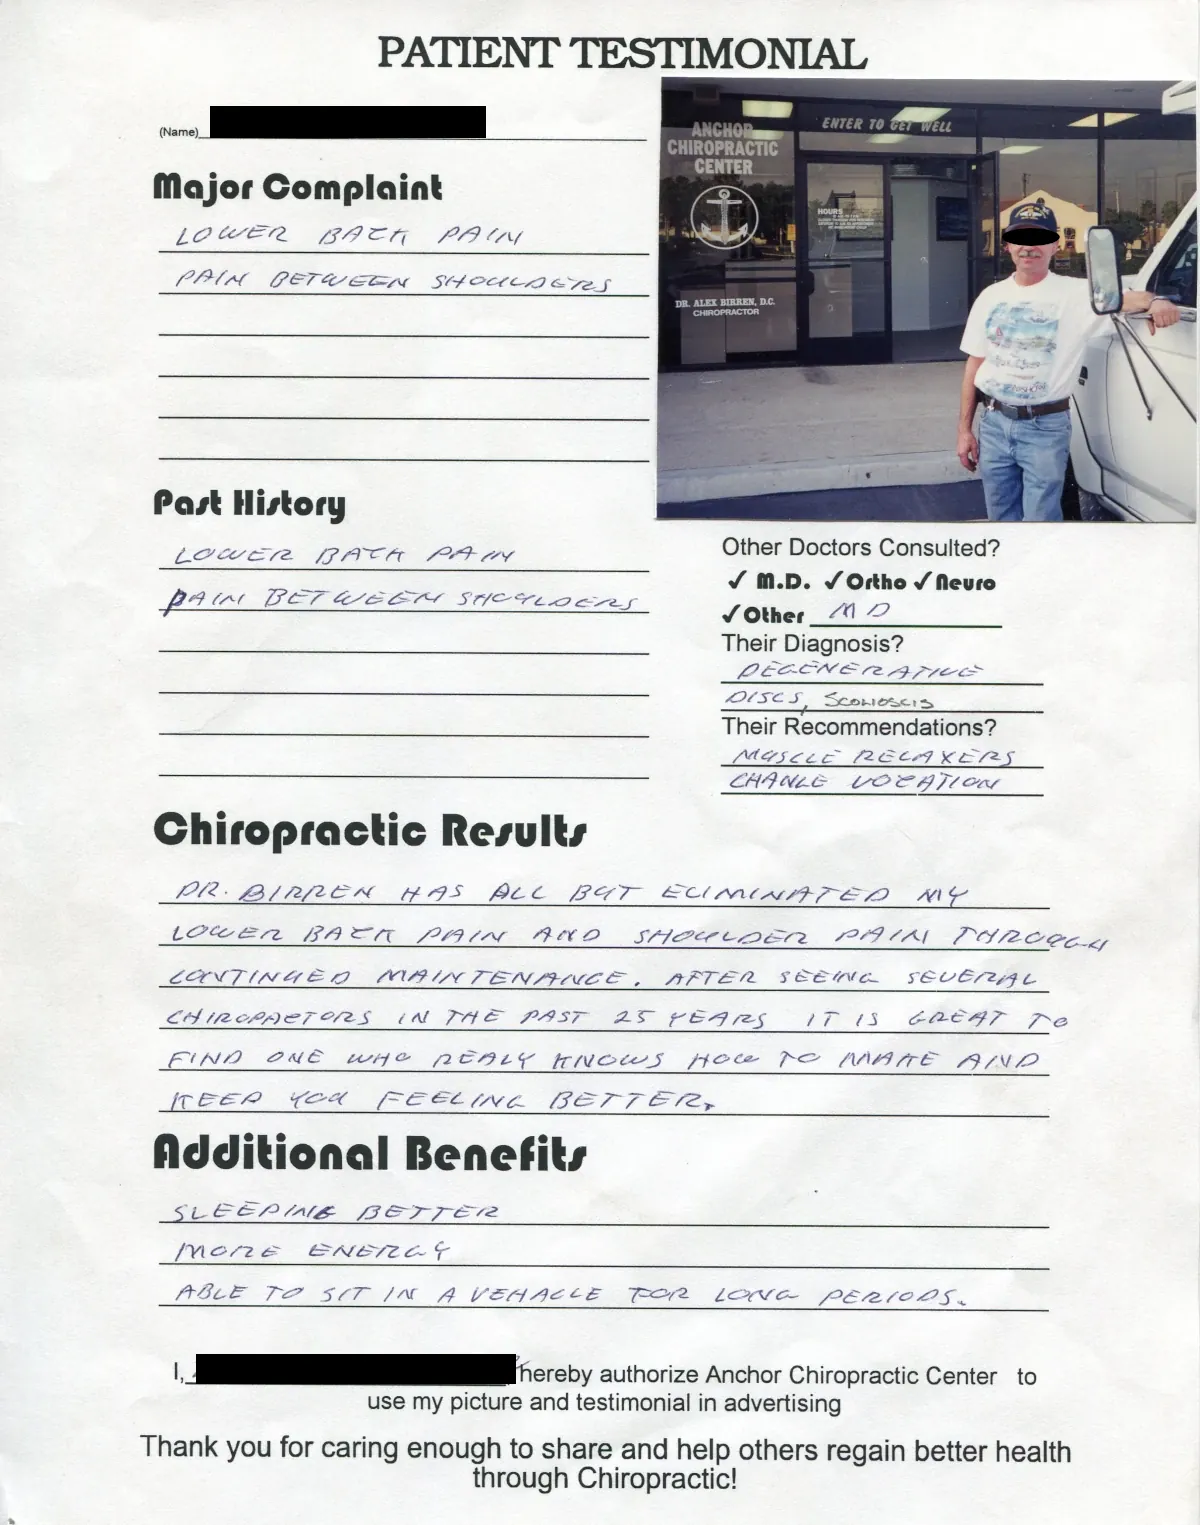 PATIENT TESTIMONIAL
(Name)
ANCHOR
CHIROPRACTIC
CENTER
ENTER TO GET WELL
HOURS
DR. ALEX BIRREN, D.C.
CHIROPRACTOR
Major Complaint
LOWER BACK PAIN
PAIN BETWEEN SHOULDERS
Past History
LOWER BACK PAIN
PAIN BETWEEN SHOULDERS
Other Doctors Consulted?
✓ M.D. ✓ Ortho ✓ Neuro
✓ Other MD
Their Diagnosis?
DEGENERATIVE
DISCS, SCOLIOSCIS
Their Recommendations?
MUSCLE RELAXERS
CHANGE VOCATION
Chiropractic Results
DR. BIRREN HAS ALL BUT ELIMINATED MY
LOWER BACK PAIN AND SHOULDER PAIN THROUGH
CONTINUED MAINTENANCE. AFTER SEEING SEVERAL
CHIROPACTORS IN THE PAST 25 YEARS IT IS GREAT TO
FIND ONE WHO REALY KNOWS HOW TO MAKE AND
KEEP YOU FEELING BETTER.
Additional Benefits
SLEEPING BETTER
MORE ENERGY
ABLE TO SIT IN A VEHACLE FOR LONG PERIODS.
I, hereby authorize Anchor Chiropractic Center to
use my picture and testimonial in advertising
Thank you for caring enough to share and help others regain better health
through Chiropractic!